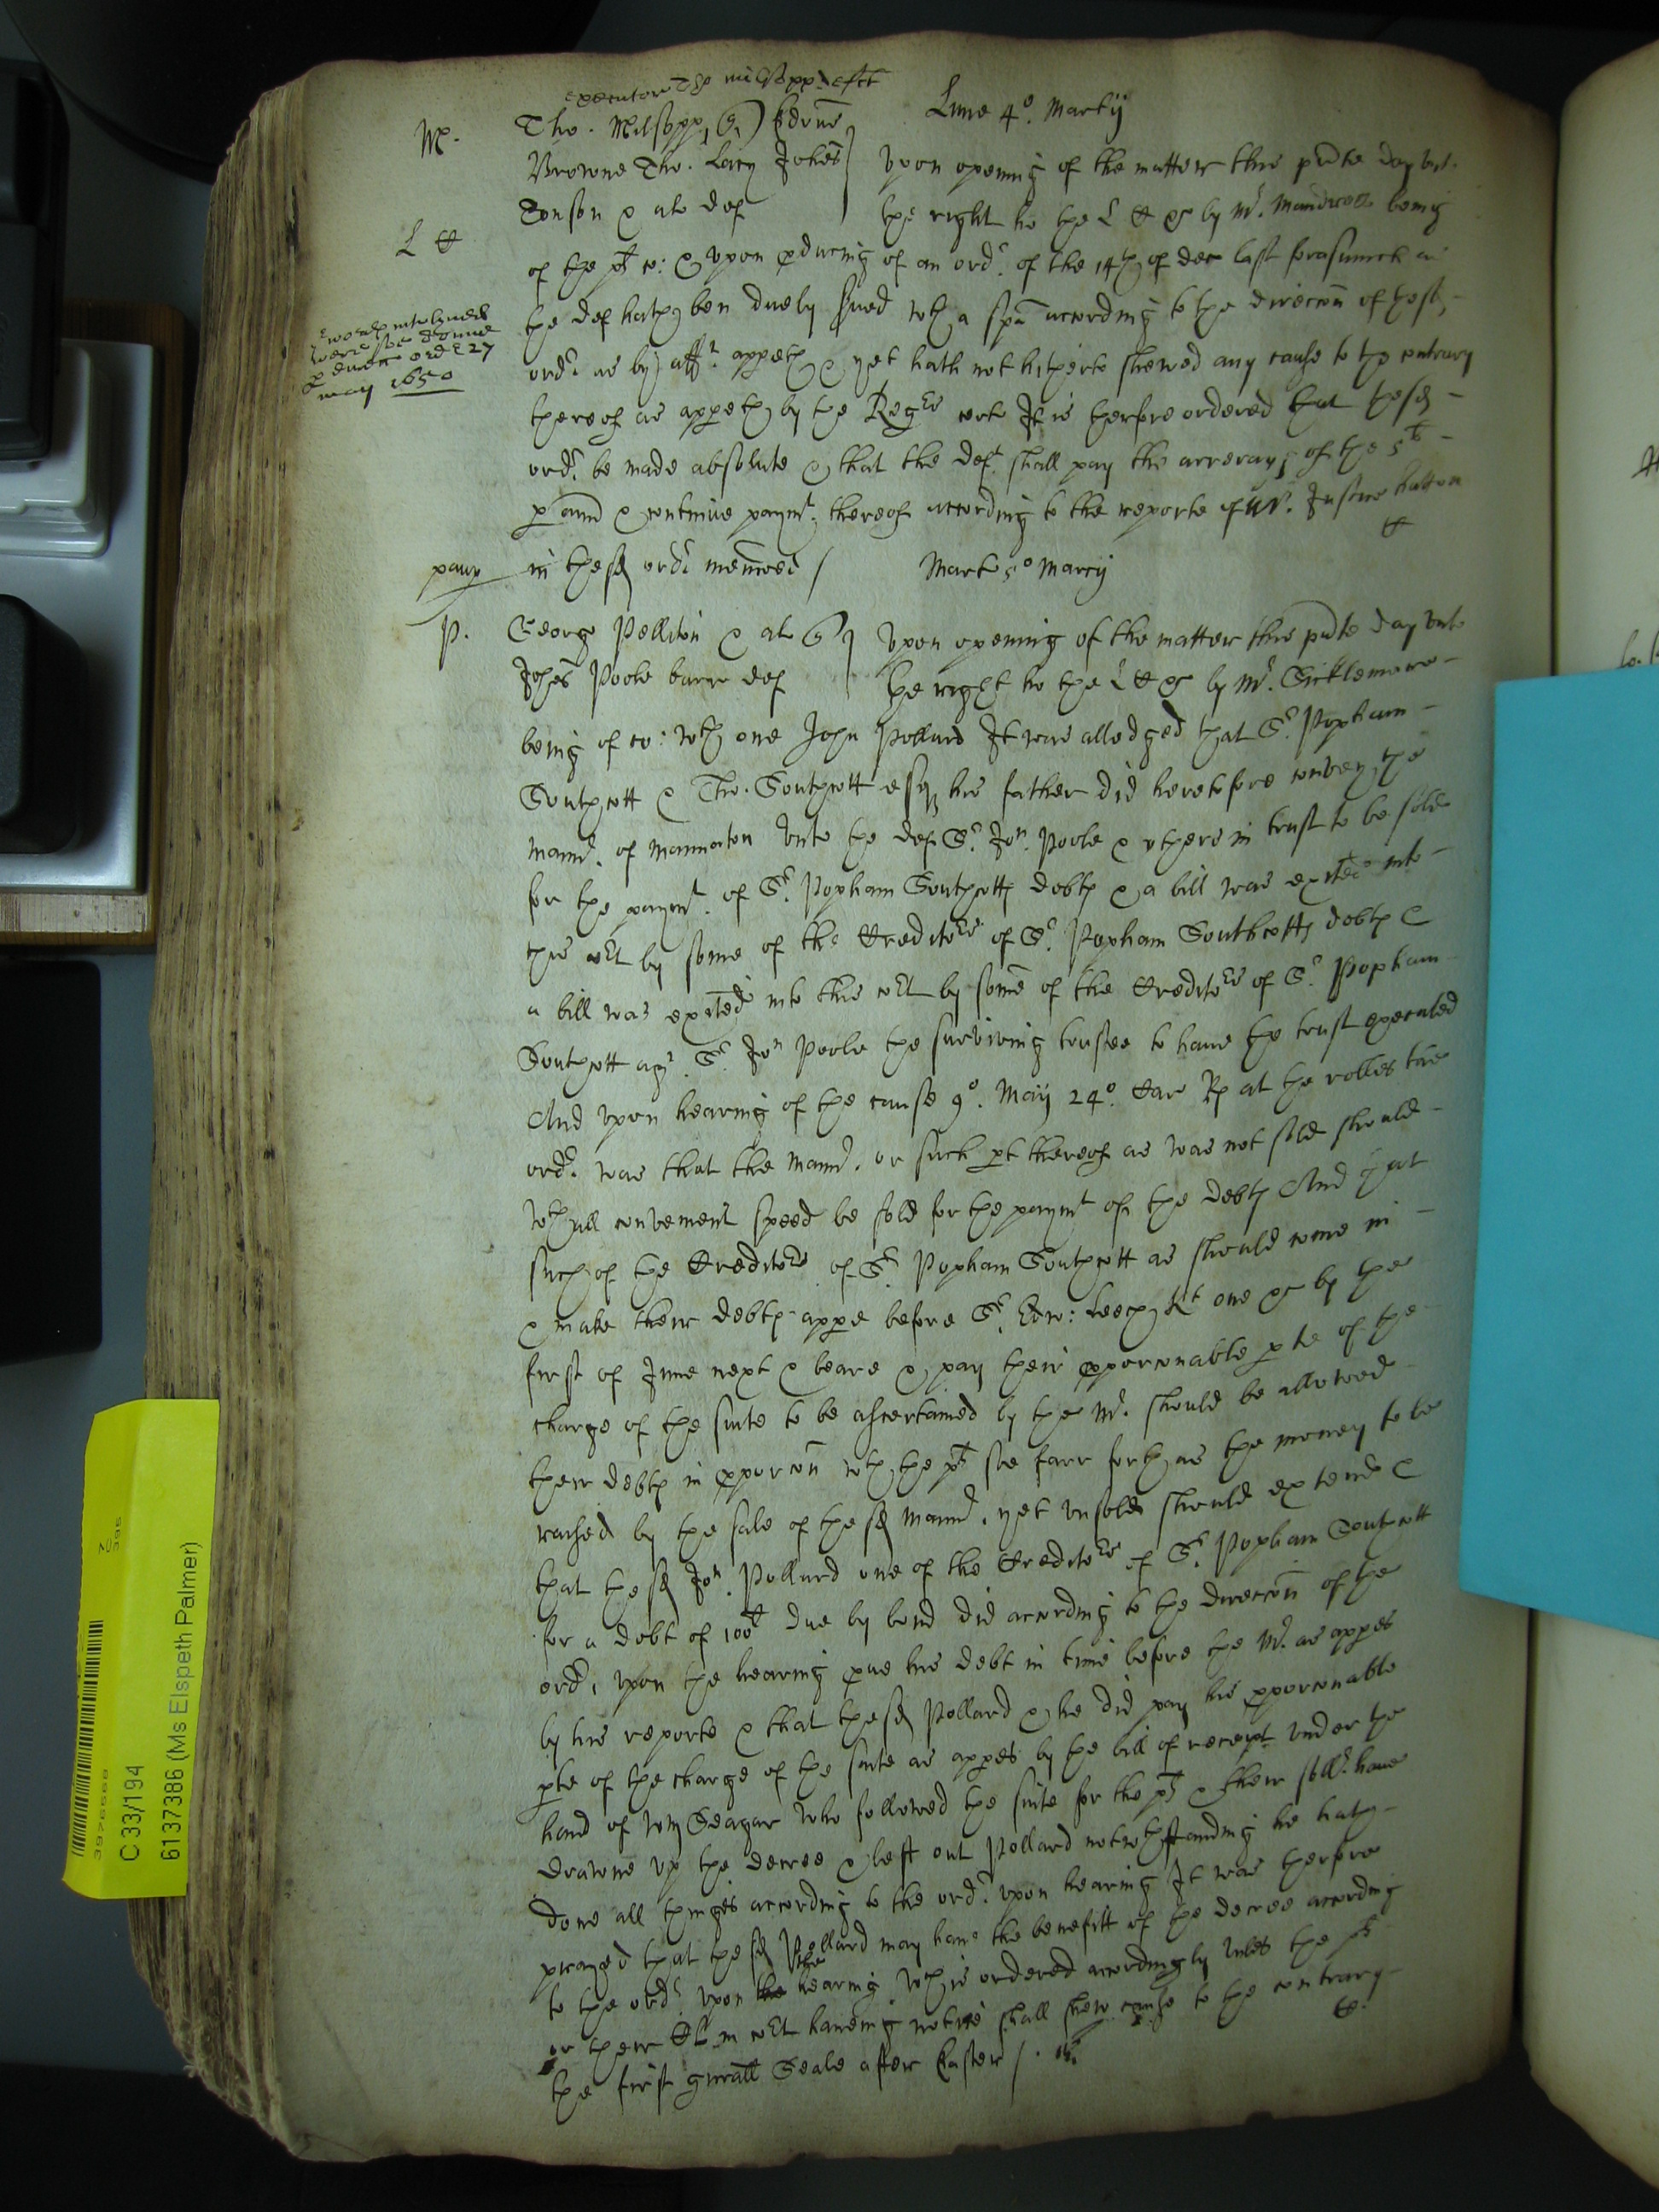 executore Tho milsopp
Lune 4º. Martij
M.
Tho. Milsopp
Browne Tho. Lacy Johes
Upon opening of the matter this pnte day unto
Jonson & al def
the right ho the L C & by Mr.
being
L C
of the plt co: & upon pducing of an ordr. of the 14th of dec last forasmuch as
the def hath ben duely sued wth a spa according to the direccon of the sd
ordr. as by afft. appeth & yet hath not hitherto shewed any cause to the contrary
may 1650
thereof as appeth by the Regrs cert It is therfore ordered that the sd
ordr. be made absolute & that the deft. shall pay the arrerages of the 5li
p ann & continue paymt. thereof according to the reporte of Mr. Justice hatton
in the sd ordr menconed /
Mart 5º Marcij
P.
George Pelliton & al
Upon opening of the matter this pnte day unto
Johes Poole barr def
the right ho the L C & by Mr. Sicklemore
being of co: wth one John Pollard It was alledged that Sr. Popham
Southcott & Tho. Southcott esq his father did heretofore convey the
mannr. of Mannaton unto the def Sr. Jon. Poole & others in trust to be sold
for the paymt. of Sr. Popham Southcotts debts & a bill was exited into
this cort by some of the Creditors of Sr. Popham Southcotts debts &
a bill was exited into this cort by some of the Creditors of Sr. Popham
Southcott agt. Sr. Jon Poole the surviving trustee to have the trust executed
And upon hearing of the cause 9º. Maij 24º. Car Rs at the rolles the
ordr. was that the mannr. or such pt thereof as was not sold should
wth all convenient speed be sold for the paymt of the debts And that
such of the Creditors of Sr. Popham Southcott as should come in
& make their debts appe before Sr. Edw: Leech Kt one & by the
first of June next & beare & pay their pporconable pte of the
charge of the suite to be ascertained by the Mr. should be allowed
their debts in pporcon wth the plt soe farr forth as the money to be
raised by the sale of the sd mannr. yet unsold should extend &
that the sd Jon. Pollard one of the Creditors of Sr. Popham Southcott
for a debt of 100li due by bond did according to the direccon of the
ordr, upon the hearing pve his debt in time before the Mr. as appes
by his reporte & that the sd Pollard & he did pay his pporconable
pte of the charge of the suite as appes by the bill of receipt under the
hand of Wm Seagar who followed the suite for the plt & their sollr. have
drawne up the decree & left out Pollard notwthstanding he hath
done all thinges according to the ordr. upon hearing It was therfore
prayed that the sd Pollard may have the benefitt of the decree according
to the ordr. upon the hearing wch is ordered accordingly unles the plt
or their Cl in cort haveing notice shall shew cause to the contrary
the first gnrall Seale after Easter /.
C 33/194
6137386 (Ms Elspeth Palmer)